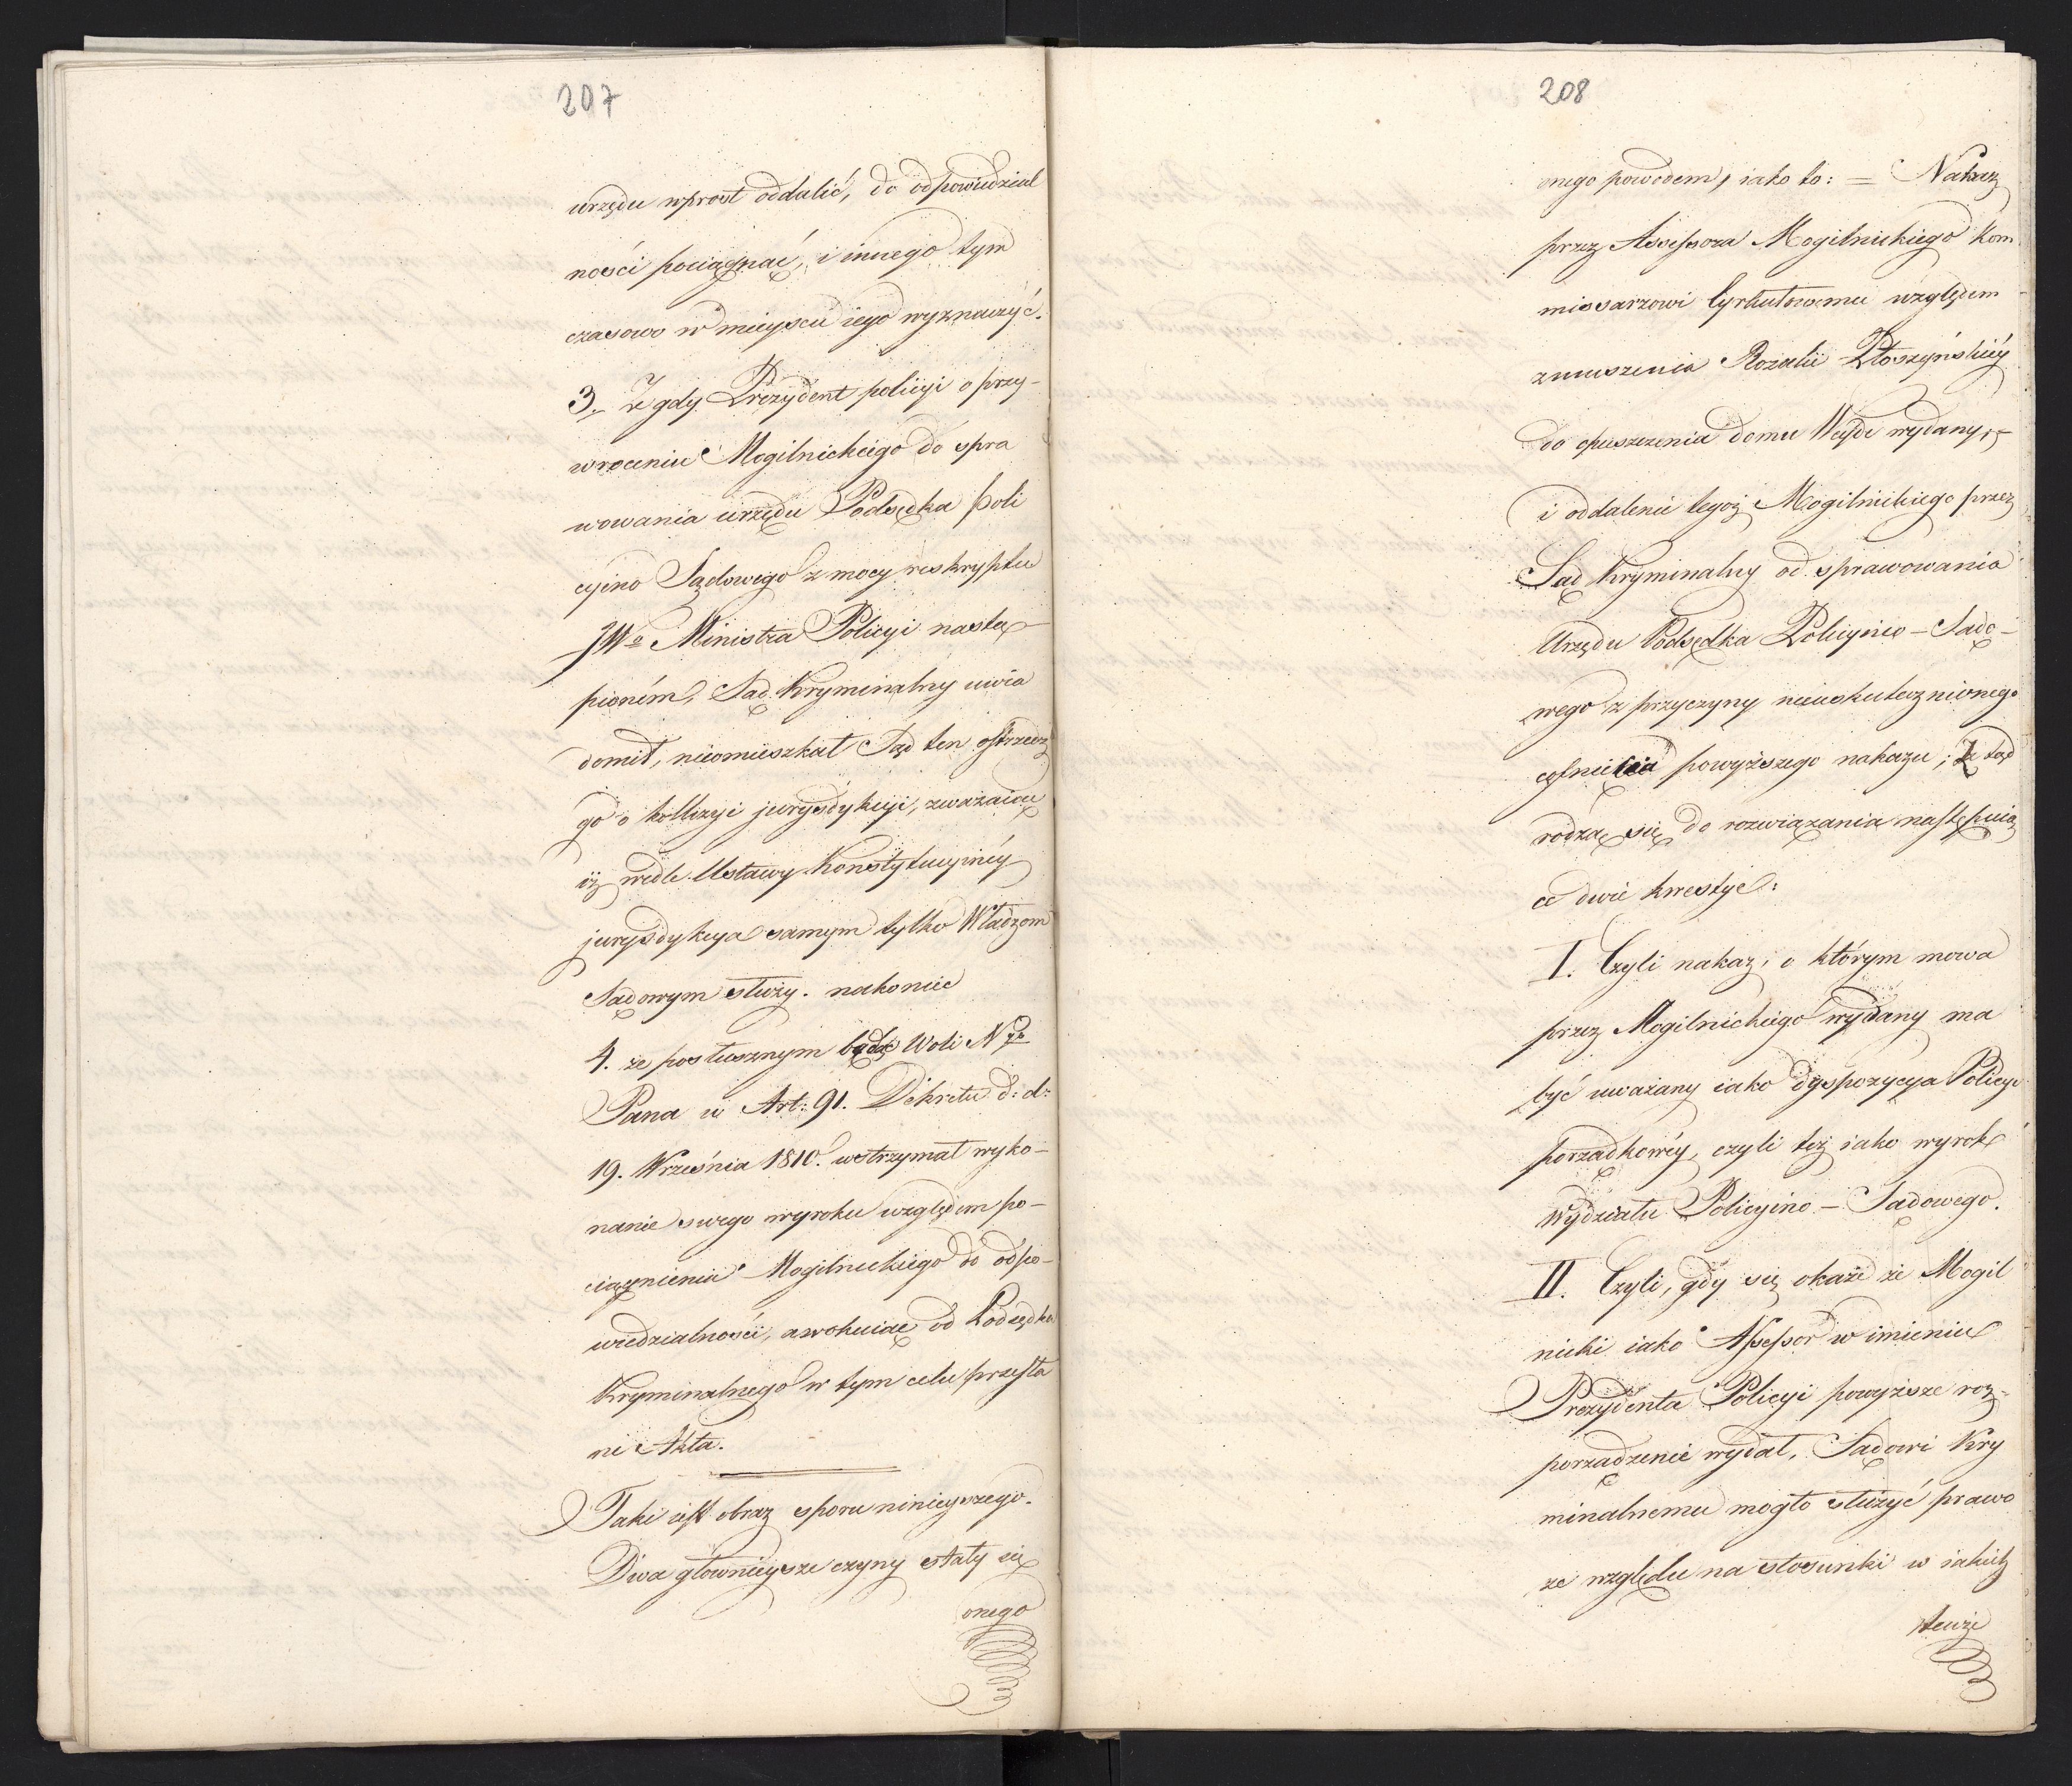 207
urzędu wprost oddalić, do odpowiedzial
ności pociągnąć, i innego tym
czasowo w mieyscu iego wyznaczyć.
3. Ze gdy Prezydent policyi o przy-
wroceniu Mogilnickiego do spra
wowania urzędu Podsędka Poli
cyino Sądowego z mocy reskryptu
JWo Ministra Policyi nastą-
pioném, Sąd Kryminalny uwia
domił, nieomieszkał Sąd ten ostrzedz
go o kollizyi jurysdykcyi, zważaiąc
iż wedle Ustawy Konstytucyinéy
jurysdykcya samym tylko Władzom
Sądowym służy. nakoniec
4. że posłusznym będąc Woli Ngo
Pana w Art: 91. Dekretu d: d:
19. Września 1810. wstrzymał wyko-
nanie swego wyroku względem po-
ciągnienia Mogilnickiego do odpo-
wiedzialności, awokuiąc od Podsędka
Kryminalnego w tym celu przesła
ne Akta.
Taki iest obraz sporu ninieyszego.
Dwa głownieysze czyny stały się
onego
208
onego powodem, iako to: = Nakaz
przez Assessora Mogilnickiego Kom
missarzowi Cyrkułowemu względem
zmuszenia Rozalii Płoszyńskiéy
do opuszczenia domu Wejde wydany,
i oddalenie tegoż Mogilnickiego przez
Sąd Kryminalny od sprawowania
Urzędu Podsędka Policyino-Sądo-
wego z przyczyny nieuskutecznionego
cofnienia powyższego nakazu; Ztąd
rodzą się do rozwiązania następuią
ce dwie kwestye:
I. Czyli nakaz, o którym mowa
przez Mogilnickiego wydany ma
być uważany iako dyspozycya Policyi
porządkowéy, czyli też iako wyrok
Wydziału Policyino-Sądowego.
II. Czyli, gdy się okaże że Mogil
nicki iako Assessor w imieniu
Prezydenta Policyi powyższe roz-
porządzenie wydał, Sądowi Kry
minalnemu mogło służyć prawo
ze względu na stosunki w iakich